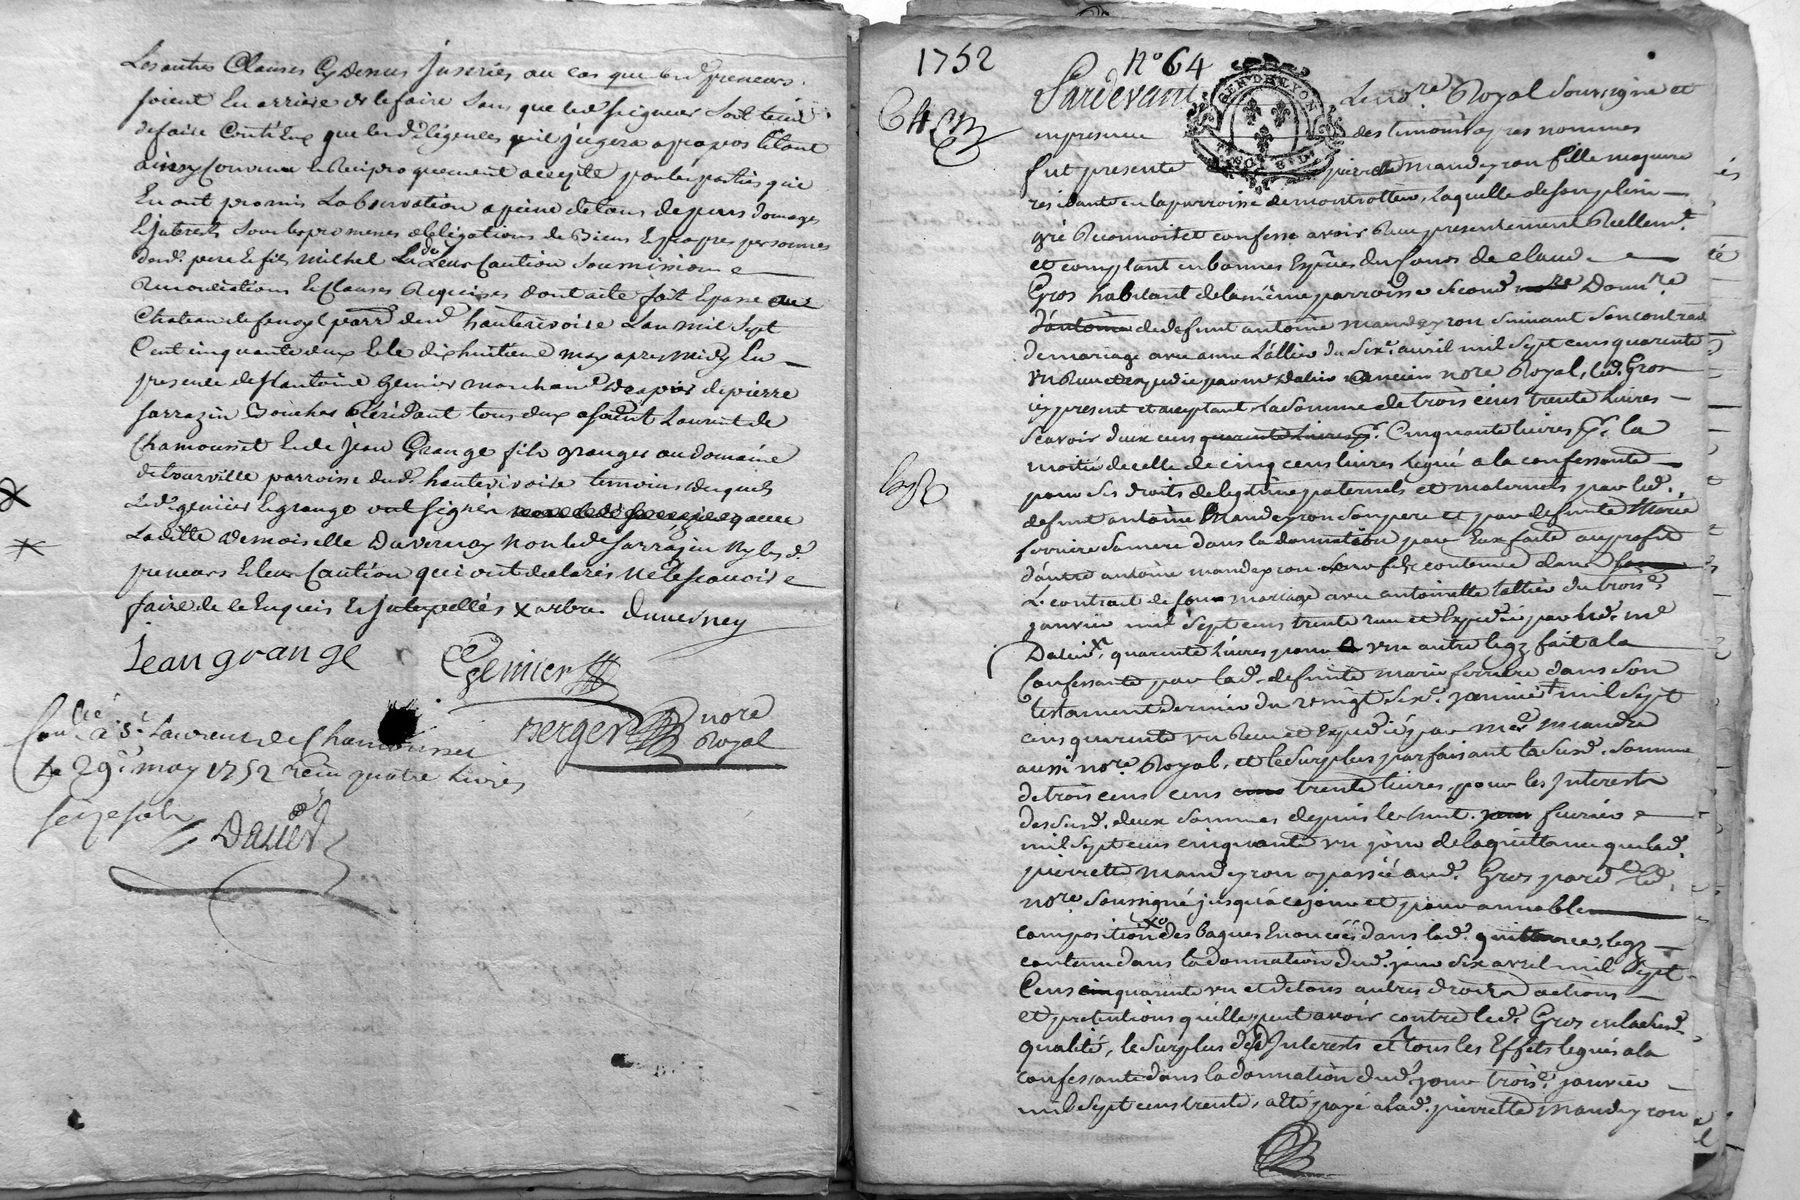 Les autres Clauses Cy Dessus Inserées au cas que lesd. preneurs
soient En arriere de le faire Sans que led. Seigneur Soit tenü
de faire Contr'Eux que les diligences qu'il jugera apropos Etant
ainsy Convenu et Reciproquement accepté par les parties qui
En ont promis Lobservation a peine de tous depens domages
Et Interests Sous les promesses obligations de Biens Et propres personnes
desd. pere Et fils Michel Et de Leur Caution Soumissions
Renonciations Et Clauses Requises dont acte fait Et passé au
Chateau de fenoyl parr. dud. hauterivoire Lan mil Sept
Cent cinquante deux Et le dix huitieme may apres Midy En
presence de St. antoine Genier marchand Drapier de pierre
Sarrazin Boucher Residant tous deux a Saint Laurent de
Chamousset Et de jean Grange fils granger au domaine
de tourville parroisse dud. hauterivoire temoins desquels
Led. genier Et grange ont signé avec
Laditte demoiselle Duvernay non led. Sarrazin Ny lesd.
preneurs Et leur Caution qui ont declarés ne le scavoir
faire de ce Enquis Et Interpellés x arbre Duverney
Jean grange Genier
Berger nore Royal
Conlé a St. Laurent de Chamousset
Le 29e may 1752 recu quatre livres
seize sols
Dalier
1752 No 64
64
Pardevant Le nore. Royal Soussigné et
en presence des temoins apres nommes
GEN. DE LYON
fut presente pierrette mandeyron fille majeure
residante en la parroisse de montrottier, Laquelle de son plein
gré Reconnoit et confesse avoir Reçu presentement Reellemt.
et comptant en bonnes Espéces du Cours de claude
Gros habitant de la même parroisse second Donnre.
d'antoine de defunt antoine mandeyron suivant son contrat
de mariage avec anne Lallier du Sixe. avril mil Sept cens quarente
un Reçu et expedié par me. Dalier ancien nore Royal, led. Gros
icy present et acceptant, La Somme de trois cens trente livres
Scavoir deux cens quarente livres pr. Cinquante livres pr. la
moitié de celle de cinq cens livres legué a la confessante
pour Ses droits de legitime paternels et maternels par led.
defunt antoine Mandeyron Son pere et par defunte Marie
ferriere Sa mere dans la donnation par Eux faite au profit
d'autre antoine mandeyron leur fils contenue dans
Le contrat de son mariage avec antoinette Lallier du troise.
janvier mil Sept cens trente Reçu et Expedié par led. me
Dalier, quarente livres pour un autre legz fait a la
Confessante par lad. defunte marie ferriere dans Son
testament dernier du vingt Sixe. janvier mil Sept
cens quarente un Reçu et Expedié par me.
aussi nore. Royal, et le Surplus parfaisant la Susd. Somme
de trois cens cens trente livres, pour les Interests
des Susd. deux Sommes depuis le huit fevrier
mil Sept cens cinquante un jour de la quittance que lad.
pierrette mandeyron a passée aud. Gros pard. led.
nore. Soussigné jusqu'à ce jour et pour amiable
composition des bagues Enoncées dans lad. quittance, legz
contenu dans la donnation dud. jour Six avril mil Sept
Cens quarente un et de tous autres droits actions
et pretentions qu'elle peut avoir contre led. Gros en lad. Susd.
qualité, le Surplus des Interests et tous les Effets legués a la
confessante dans la donnation dud. jour troise. janvier
mil Sept cens trente, a été payé a lad. pierrette Mandeyron